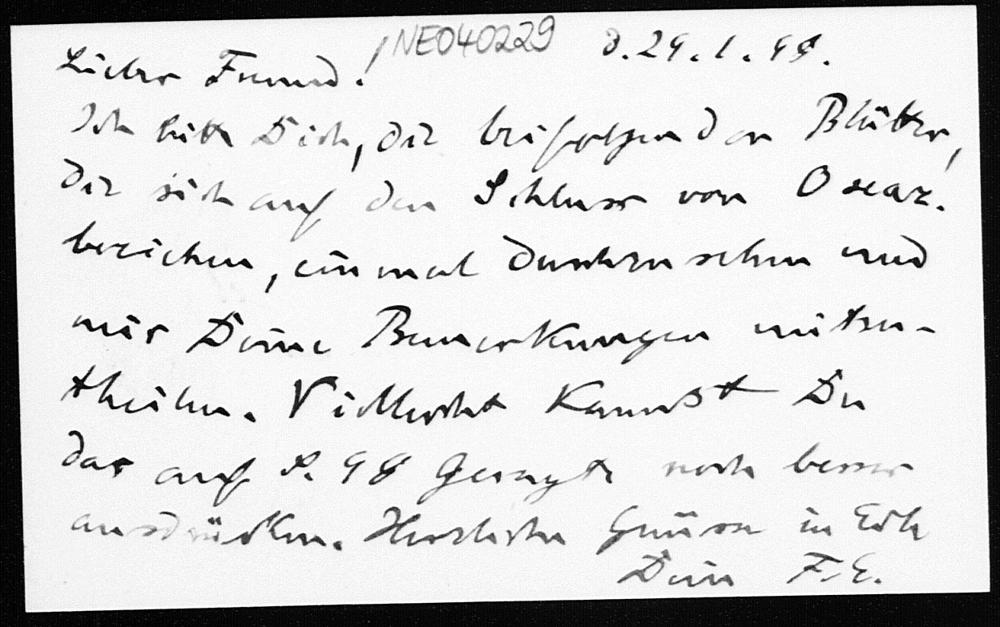 NE040229
d. 29.1.98.
Lieber Freund!
Ich bitte Dich, die beifolgenden Blätter,
die sich auf den Schluss von Oscar.
beziehen, einmal durchzusehen und
mir Deine Bemerkungen mitzu-
theilen. Vielleicht kannst Du
das auf S. 98 Gesagte noch besser
ausdrücken. Herzliche Grüsse in Eile
Dein F.E.